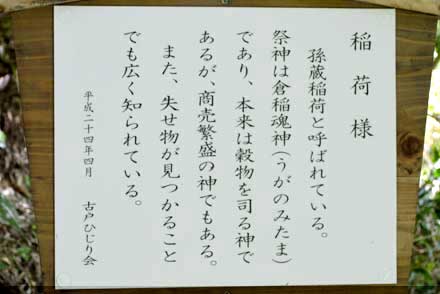 稲荷様
孫蔵稲荷と呼ばれている。
祭神は倉稲魂神(うがのみたま)
であり、本来は穀物を司る神で
あるが、商売繁盛の神でもある。
また、失せ物が見つかること
でも広く知られている。
平成二十四年四月 古戸ひじり会